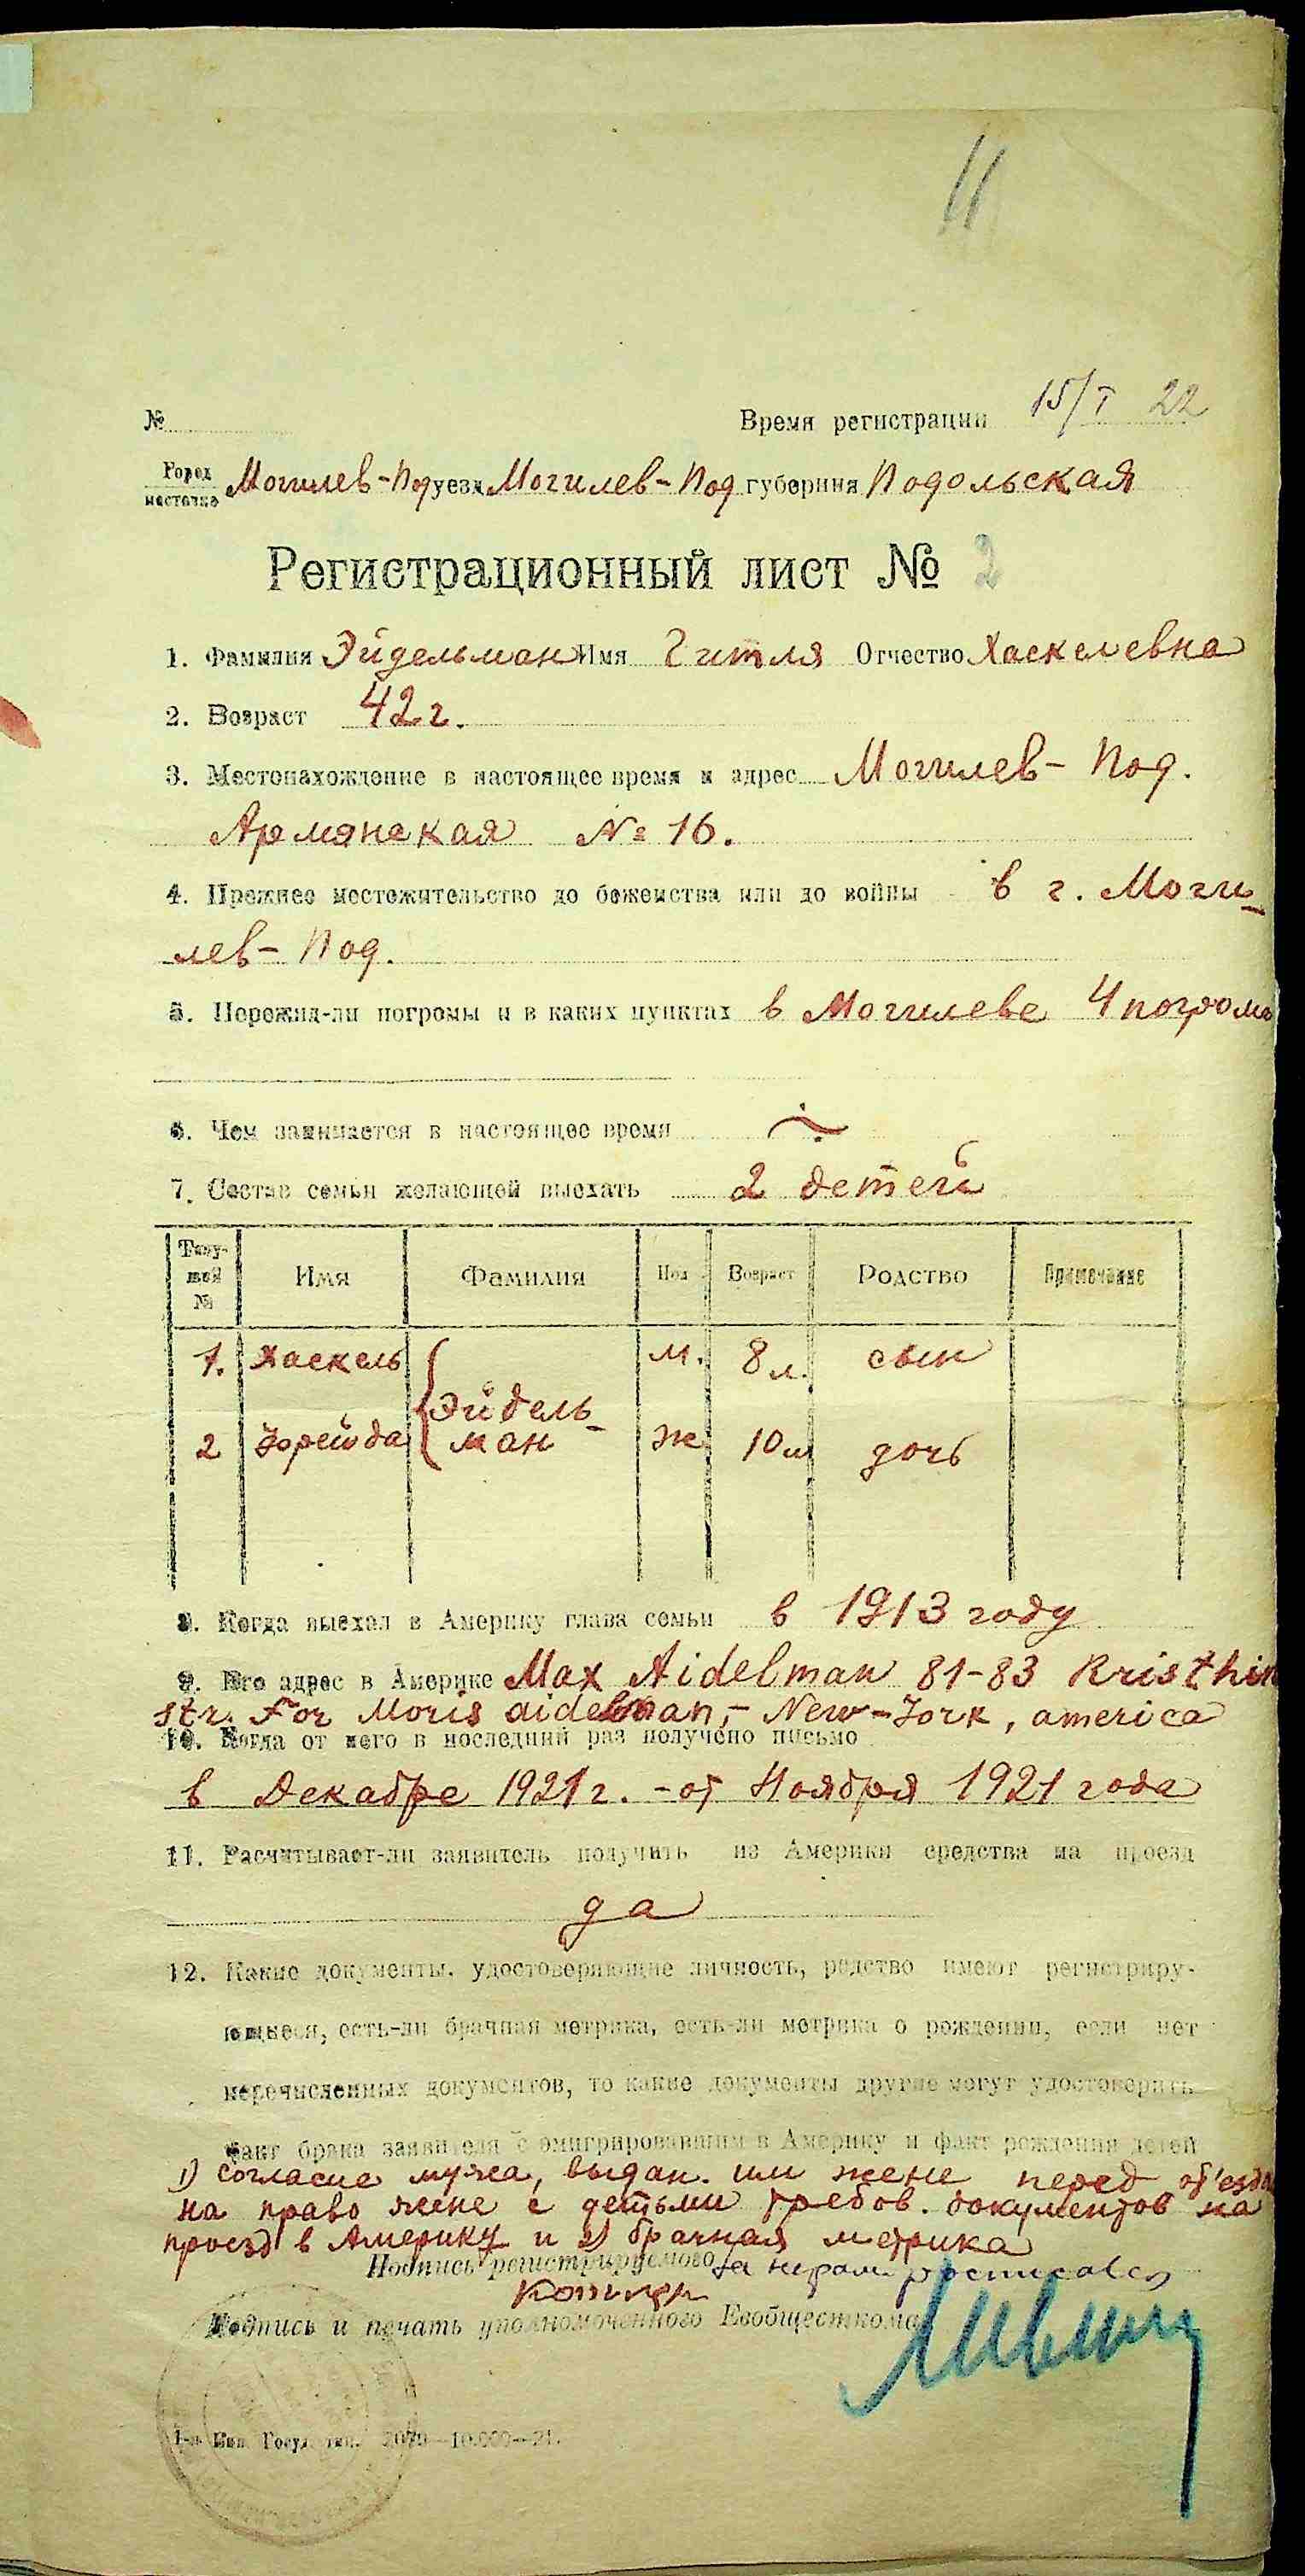 11
№ Время регистрации 15/I 22
Город
местечко Могилев-Под уезд Могилев-Под губерния Подольская
Регистрационный лист № 2
1. Фамилия Эйдельман Имя Гитля Отчество Хаскелевна
2. Возраст 42 г.
3. Местонахождение в настоящее время и адрес Могилев- Под.
Армянская № 16.
4. Прежнее местожительство до беженства или до войны в г. Моги-
лев- Под.
5. Пережил-ли погромы и в каких пунктах в Могилеве 4 погрома
6. Чем занимается в настоящее время
7. Состав семьи желающей выехать 2 детей
Теку-
щий
№ Имя Фамилия Пол Возраст Родство Примечание
1. Хаскель Эйдель- м. 8 л. сын
2 Фрейда ман ж 10 л дочь
8. Когда выехал в Америку глава семьи в 1913 году
9. Его адрес в Америке Max Aidelman 81-83 Kristhin
str. For Moris aidelman,- New-York, america
10. Когда от него в последний раз получено письмо
в Декабре 1921 г. - от Ноября 1921 года
11. Расчитывает-ли заявитель получить из Америки средства на проезд
да
12. Какие документы, удостоверяющие личность, родство имеют регистриру-
ющиеся, есть-ли брачная метрика, есть-ли метрика о рождении, если нет
перечисленных документов, то какие документы другие могут удостоверить
факт брака заявителя с эмигрировавшим в Америку и факт рождения детей
1) согласие мужа, выдан. им жене перед от'ездом
на право жене с детьми требов. документов на
проезд в Америку и 2) брачная метрика
Подпись регистрируемого за неграм. росписался
Подпись и печать уполномоченного Евобщесткома
2070—10.000—21.